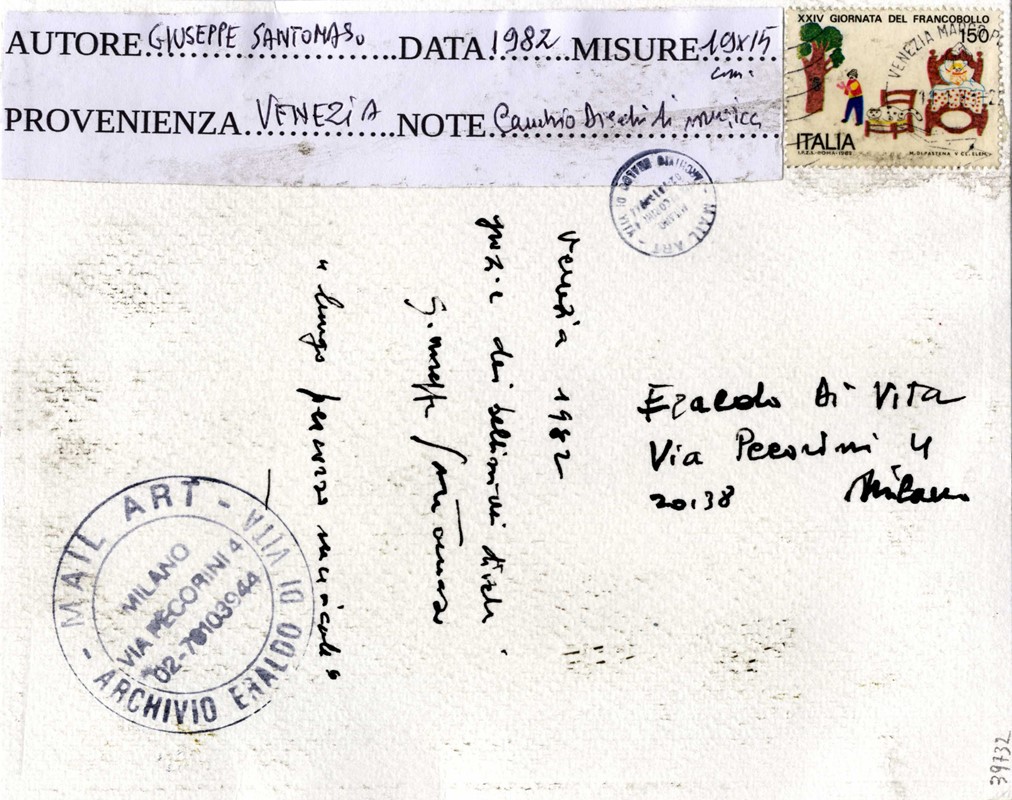 AUTORE GIUSEPPE SANTOMASO DATA 1982 MISURE 19x15 cm.
PROVENIENZA VENEZIA NOTE Cambio Dischi di musica
XXIV GIORNATA DEL FRANCOBOLLO
150
ITALIA
I.P.Z.S. - ROMA - 1982
VENEZIA
MAIL ART - ARCHIVIO ERALDO DI VITA
MILANO
Venezia 1982
grazie dei bellissimi dischi.
G. Santomaso
"lungo percorso
Eraldo Di Vita
Via Pecorini 4
20138 Milano
MAIL ART - ARCHIVIO ERALDO DI VITA -
MILANO
VIA PECORINI 4
02-70103944
39732